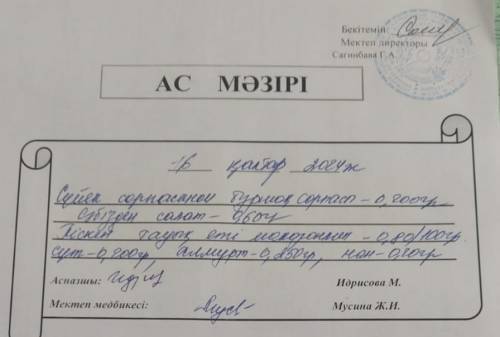 Бекітемін
Мектеп директоры
Сагинбаева Г.А.
АС МӘЗІРІ
16 қаңтар 2024ж
Сүйек сорпасынан бұршақ сорпасы - 0,200гр
Сәбізден салат - 0,60гр
Піскен тауық еті макаронмен - 0,80/100гр
сүт - 0,200гр, алмұрт - 0,250гр, нан - 0,20гр
Аспазшы: Идрисова М.
Мектеп медбикесі: Мусина Ж.И.